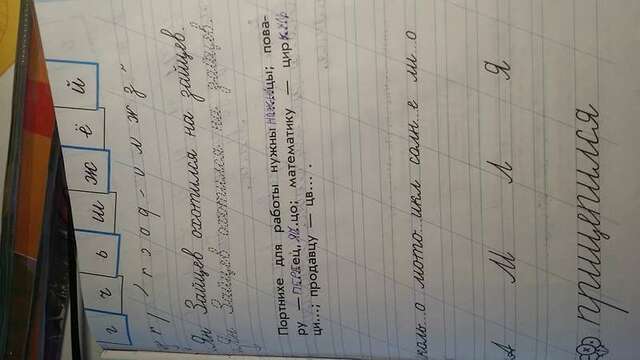 г ч ь ш ж ё й
Ян Зайцев охотился на зайцев.
Ян Зайцев охотился на зайцев.
Портнихе для работы нужны ножницы; пова-
ру — перец, яйцо; математику — циркуль
ци...; продавцу — цв... .
коль..о мото..икл солн..е ли..о
А М Л Я
прищепился